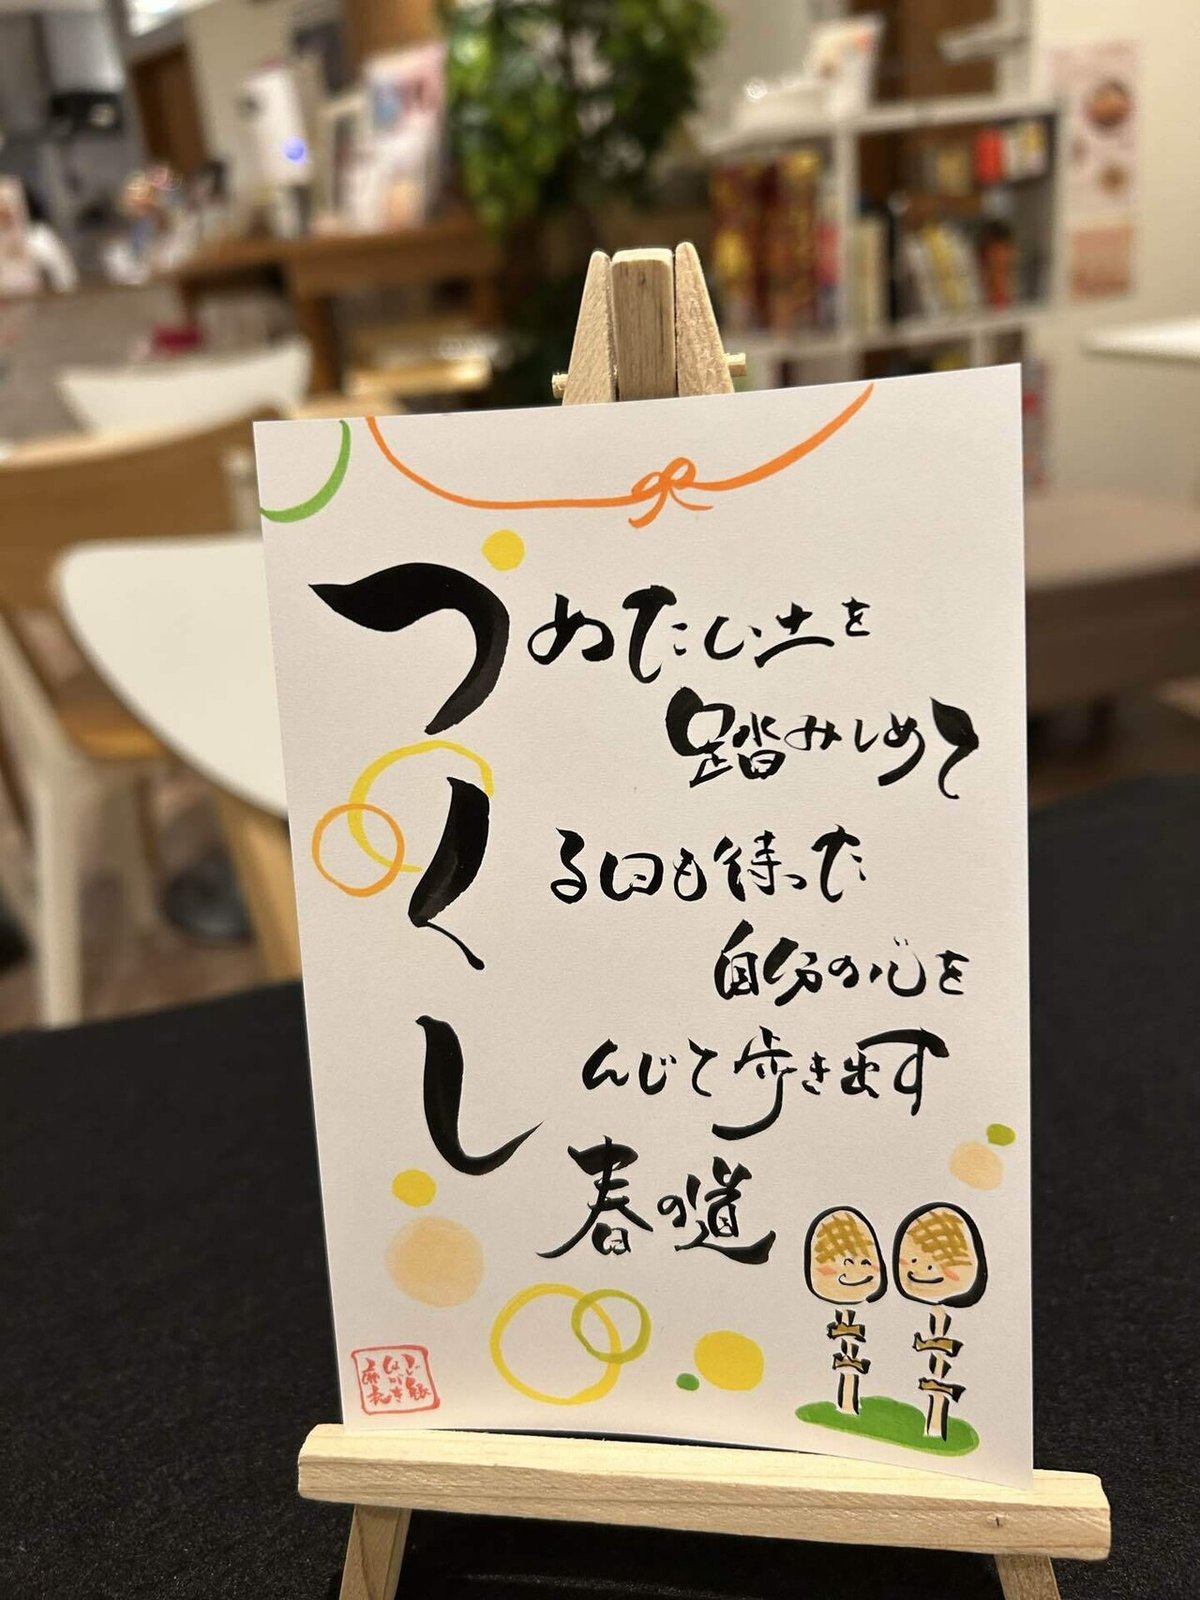 つめたい土を
踏みしめて
くる日も待った
自分の心を
しんじて歩き出す
春の道